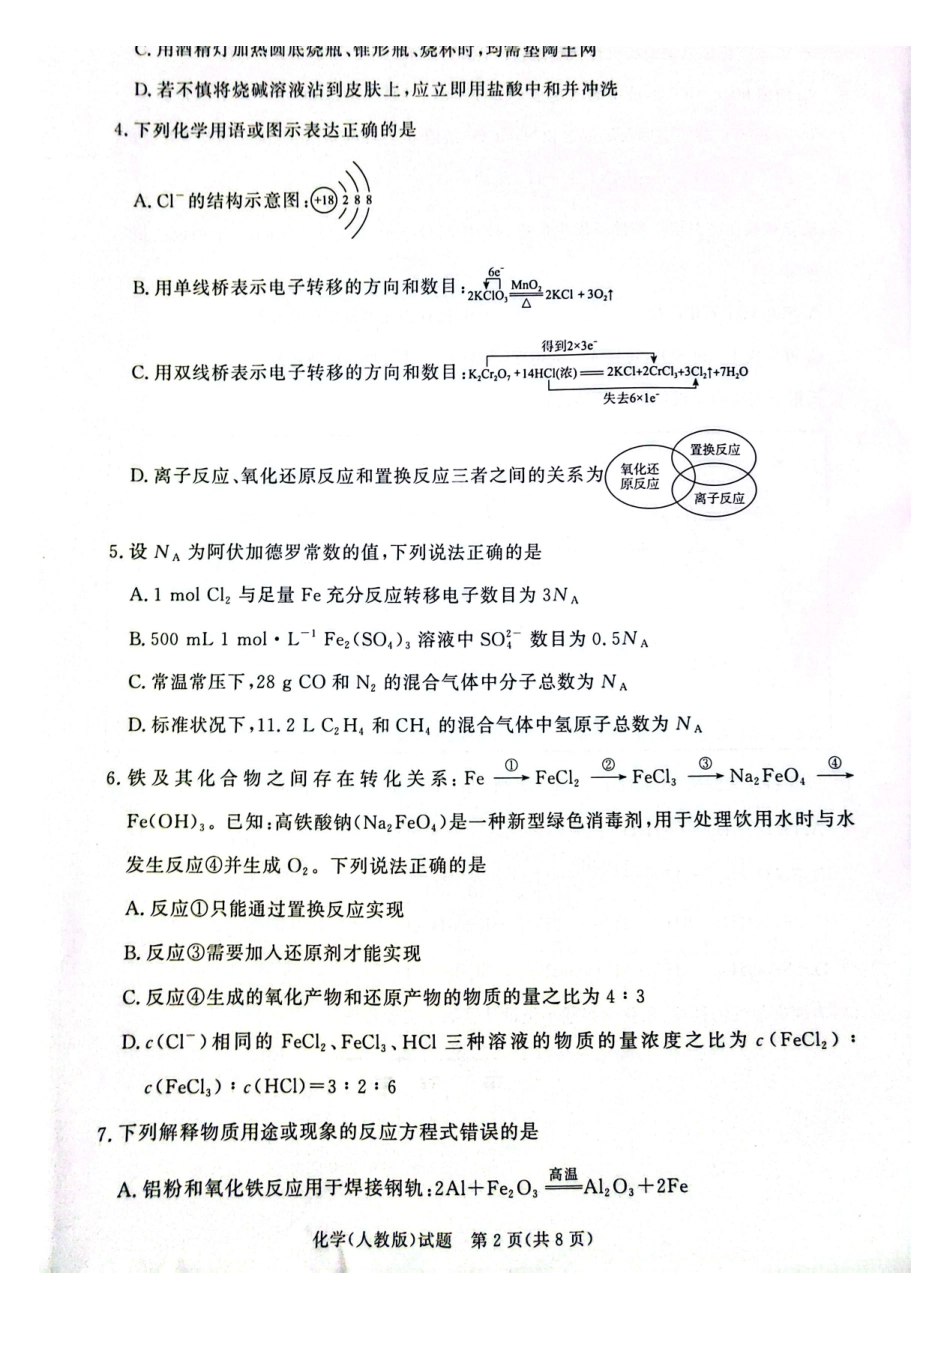 C. 用酒精灯加热圆底烧瓶、锥形瓶、烧杯时,均需垫陶土网
D. 若不慎将烧碱溶液沾到皮肤上,应立即用盐酸中和并冲洗
4. 下列化学用语或图示表达正确的是
A. Cl⁻ 的结构示意图: +18 2 8 8
B. 用单线桥表示电子转移的方向和数目: 6e⁻ 2KClO₃ MnO₂ △ 2KCl + 3O₂↑
得到2×3e⁻
C. 用双线桥表示电子转移的方向和数目: K₂Cr₂O₇ +14HCl(浓) ══ 2KCl+2CrCl₃+3Cl₂↑+7H₂O
失去6×1e⁻
D. 离子反应、氧化还原反应和置换反应三者之间的关系为 氧化还原反应 置换反应 离子反应
5. 设 Nᴀ 为阿伏加德罗常数的值,下列说法正确的是
A. 1 mol Cl₂ 与足量 Fe 充分反应转移电子数目为 3Nᴀ
B. 500 mL 1 mol·L⁻¹ Fe₂(SO₄)₃ 溶液中 SO₄²⁻ 数目为 0.5Nᴀ
C. 常温常压下,28 g CO 和 N₂ 的混合气体中分子总数为 Nᴀ
D. 标准状况下,11.2 L C₂H₄ 和 CH₄ 的混合气体中氢原子总数为 Nᴀ
6. 铁及其化合物之间存在转化关系: Fe ①→ FeCl₂ ②→ FeCl₃ ③→ Na₂FeO₄ ④→
Fe(OH)₃。已知:高铁酸钠(Na₂FeO₄)是一种新型绿色消毒剂,用于处理饮用水时与水
发生反应④并生成 O₂。下列说法正确的是
A. 反应①只能通过置换反应实现
B. 反应③需要加入还原剂才能实现
C. 反应④生成的氧化产物和还原产物的物质的量之比为 4∶3
D. c(Cl⁻)相同的 FeCl₂、FeCl₃、HCl 三种溶液的物质的量浓度之比为 c(FeCl₂)∶
c(FeCl₃)∶c(HCl)=3∶2∶6
7. 下列解释物质用途或现象的反应方程式错误的是
A. 铝粉和氧化铁反应用于焊接钢轨:2Al+Fe₂O₃ 高温══ Al₂O₃+2Fe
化学(人教版)试题 第 2 页(共 8 页)